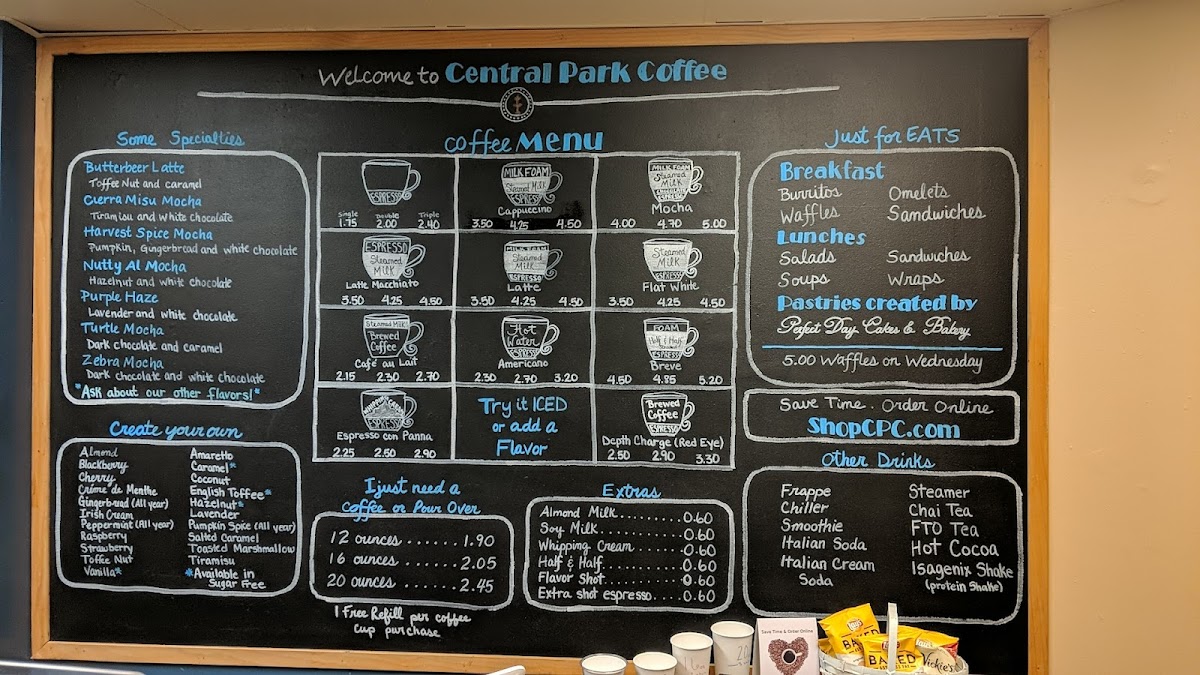 Welcome to Central Park Coffee
Some Specialties
Butterbeer Latte
Toffee Nut and caramel
Cierra Misu Mocha
Tiramisu and White chocolate
Harvest Spice Mocha
Pumpkin, Gingerbread and white chocolate
Nutty Al Mocha
Hazelnut and white chocolate
Purple Haze
Lavender and white chocolate
Turtle Mocha
Dark chocolate and caramel
Zebra Mocha
Dark chocolate and white chocolate
*Ask about our other flavors!*
Create your own
Almond
Blackberry
Cherry
Créme de Menthe
Gingerbread (All year)
Irish Cream
Peppermint (All year)
Raspberry
Strawberry
Toffee Nut
Vanilla*
Amaretto
Caramel*
Coconut
English Toffee*
Hazelnut*
Lavender
Pumpkin Spice (All year)
Salted Caramel
Toasted Marshmallow
Tiramisu
*Available in
Sugar Free
coffee Menu
ESPRESSO
Single Double Triple
1.75 2.00 2.40
MILK FOAM
Steamed Milk
ESPRESSO
Cappuccino
3.50 4.25 4.50
MILK FOAM
Steamed
MILK
Mocha
4.00 4.70 5.00
ESPRESSO
Steamed
MILK
Latte Macchiato
3.50 4.25 4.50
MILK FOAM
Steamed
Milk
ESPRESSO
Latte
3.50 4.25 4.50
Steamed
MILK
ESPRESSO
Flat White
3.50 4.25 4.50
Steamed MILK
Brewed
Coffee
Café au Lait
2.15 2.30 2.70
Hot
Water
ESPRESSO
Americano
2.30 2.70 3.20
FOAM
Half & Half
ESPRESSO
Breve
4.50 4.85 5.20
Whipped Cream
ESPRESSO
Espresso con Panna
2.25 2.50 2.90
Try it ICED
or add a
Flavor
Brewed
Coffee
ESPRESSO
Depth Charge (Red Eye)
2.50 2.90 3.30
I just need a
coffee or Pour Over
12 ounces ...... 1.90
16 ounces ...... 2.05
20 ounces ..... 2.45
1 Free Refill per coffee
cup purchase
Extras
Almond Milk.......0.60
Soy Milk.........0.60
Whipping Cream......0.60
Half & Half.........0.60
Flavor Shot.........0.60
Extra shot espresso....0.60
Just for EATS
Breakfast
Burritos Omelets
Waffles Sandwiches
Lunches
Salads Sandwiches
Soups Wraps
Pastries created by
Perfect Day Cakes & Bakery
5.00 Waffles on Wednesday
Save Time. Order Online
ShopCPC.com
Other Drinks
Frappe
Chiller
Smoothie
Italian Soda
Italian Cream
Soda
Steamer
Chai Tea
FTO Tea
Hot Cocoa
Isagenix Shake
(protein Shake)
Save Time & Order Online
Lay's
BAKED
Vickie's
20